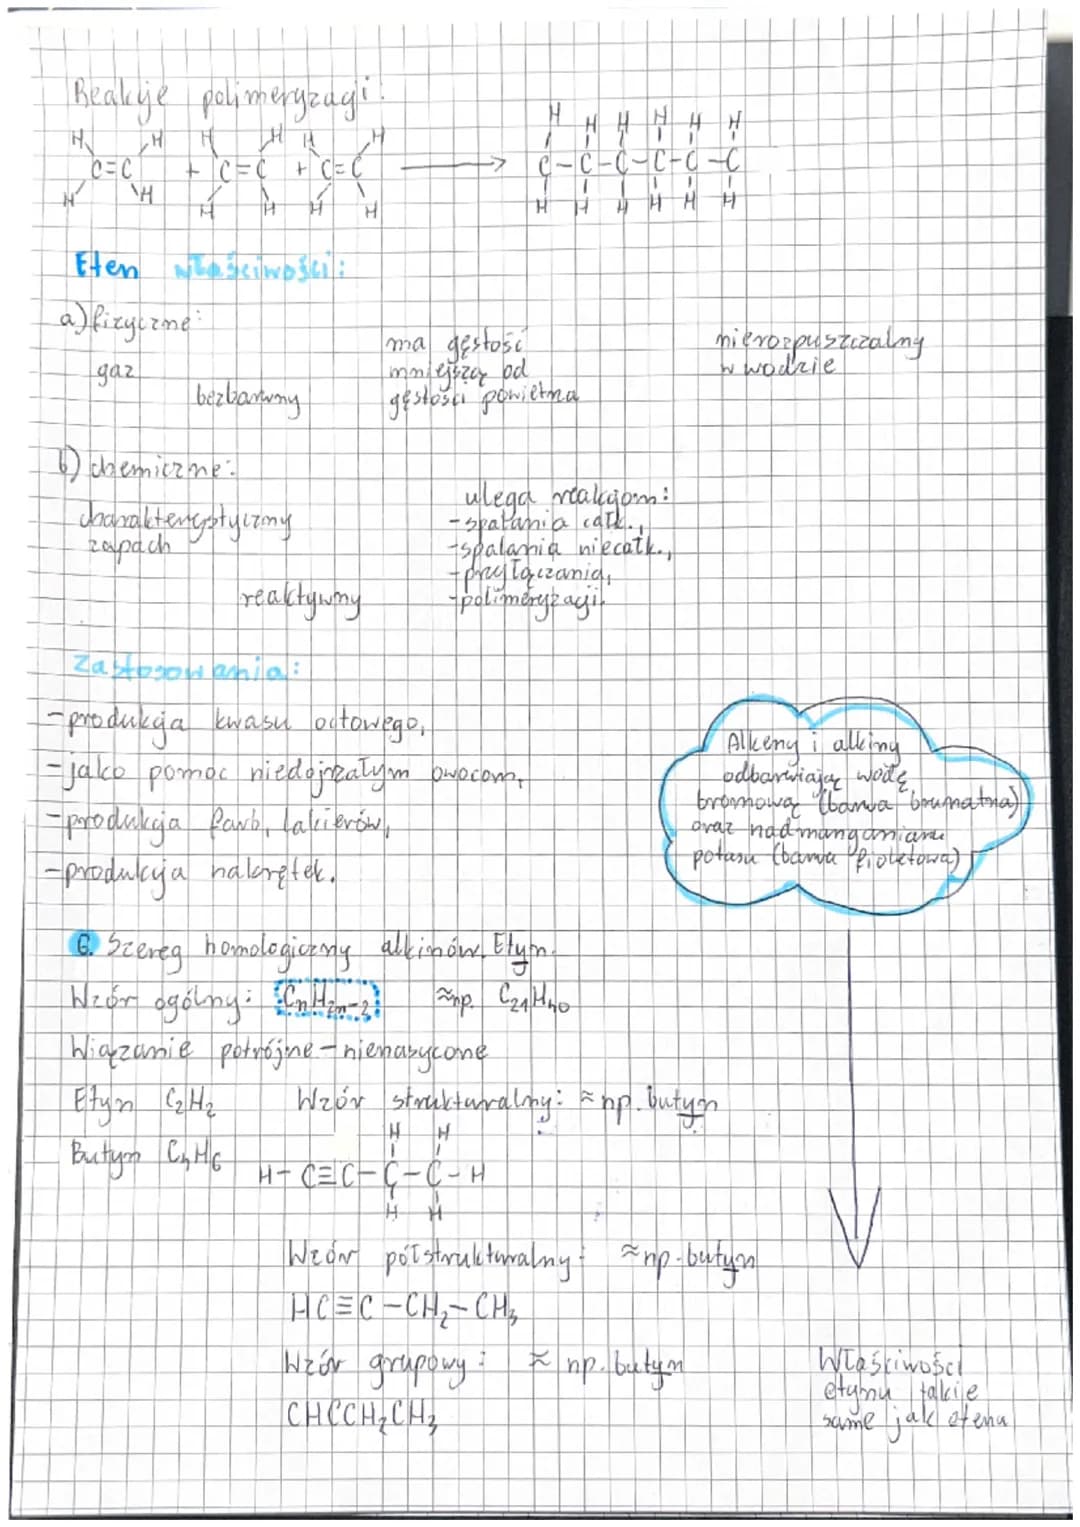 Reakcje polimeryzacji:
H H H H H H H H H H H H
C=C + C=C + C=C → C-C-C-C-C-C
H H H H H H H H H H H H
Eten właściwości:
a) fizyczne:
gaz
bezbarwny
ma gęstość
mniejszą od
gęstości powietrza
nierozpuszczalny
w wodzie
b) chemiczne:
charakterystyczny
zapach
reaktywny
ulega reakcjom:
-spalania całk.,
-spalania niecałk.,
-przyłączania,
-polimeryzacji.
Zastosowania:
-produkcja kwasu octowego,
-jako pomoc niedojrzałym owocom,
-produkcja farb, lakierów,
-produkcja nakrętek.
Alkeny i alkiny
odbarwiają wodę
bromową (barwa brunatna)
oraz nadmanganianu
potasu (barwa fioletowa)
6. Szereg homologiczny alkinów. Etyn.
Wzór ogólny: CnH2n-2 ≈np. C21H40
Wiązanie potrójne - nienasycone
Etyn C2H2 Wzór strukturalny: ≈ np. butyn
Butyn C4H6
H H
H-C≡C-C-C-H
H H
Wzór półstrukturalny: ≈np. butyn
HC≡C-CH2-CH3
Wzór grupowy: ≈ np. butyn
CHCCH2CH3
Właściwości
etynu takie
same jak etenu